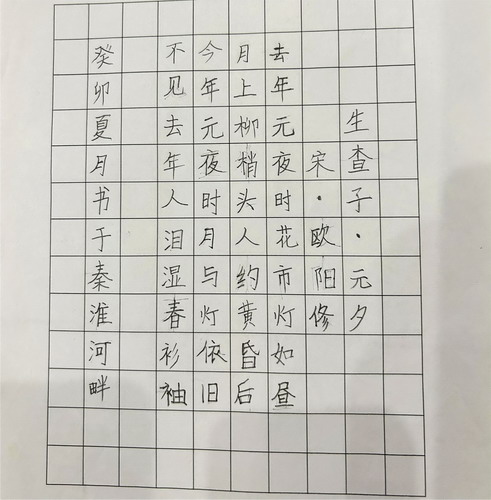 生查子·元夕
宋·欧阳修
去年元夜时花市灯如昼
月上柳梢头人约黄昏后
今年元夜时月与灯依旧
不见去年人泪湿春衫袖
癸卯夏月书于秦淮河畔